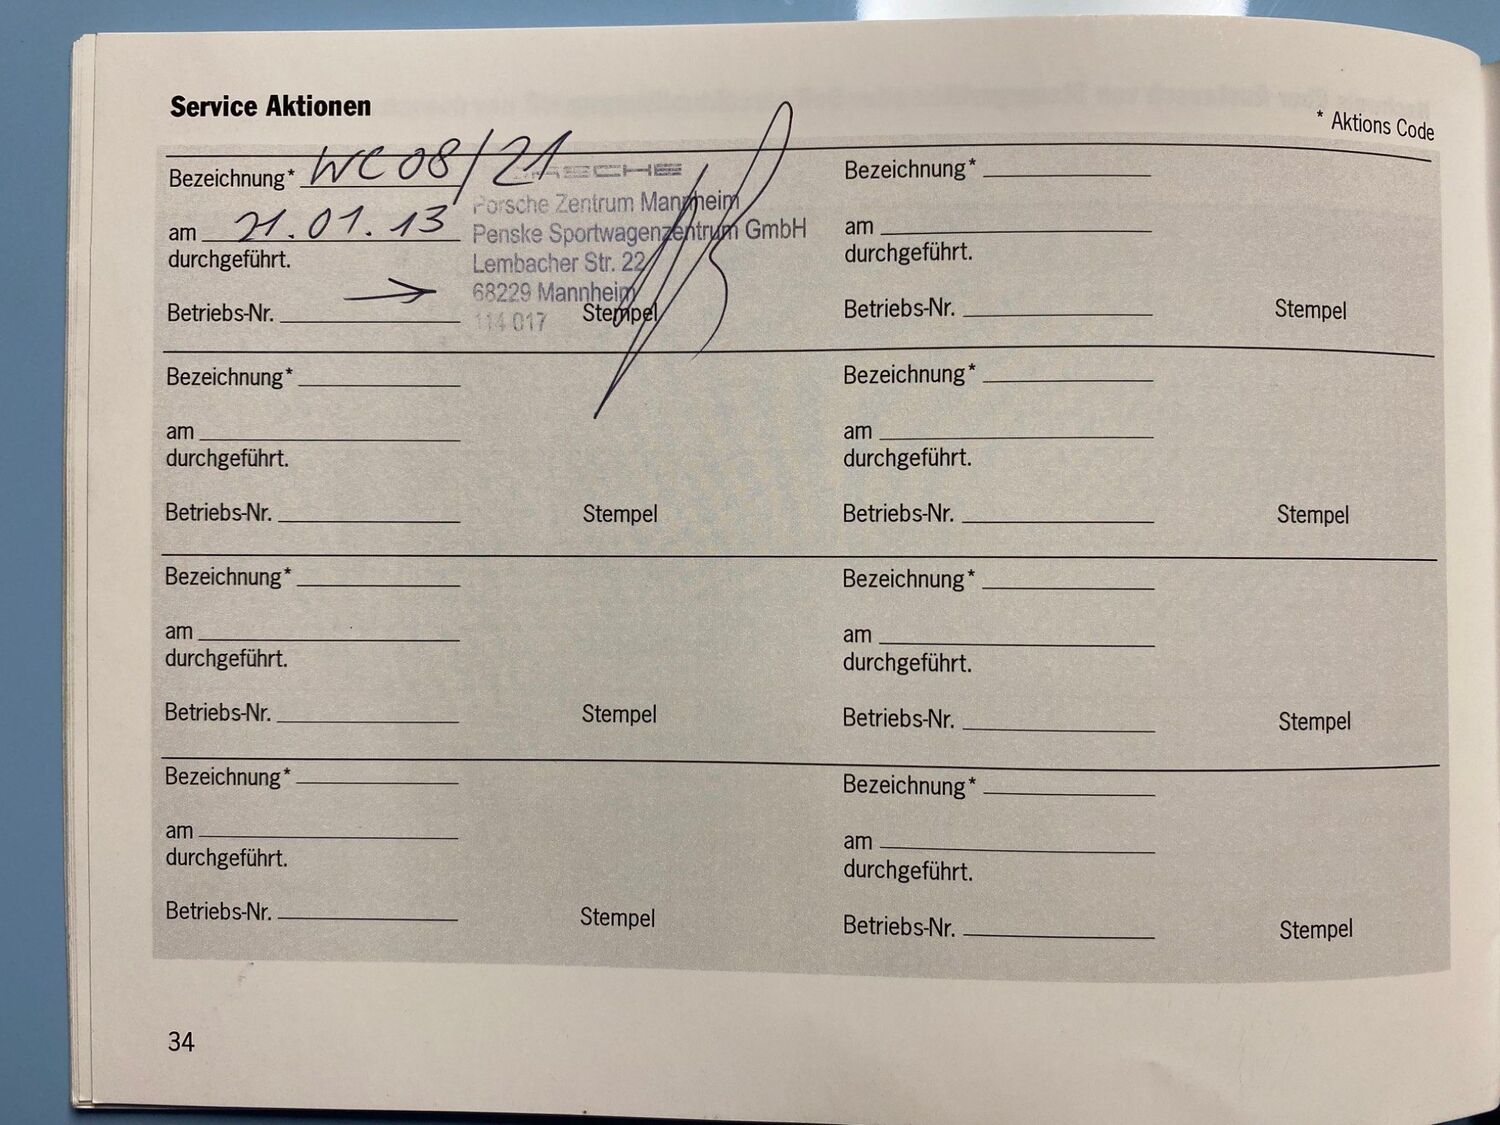 Service Aktionen
* Aktions Code
Bezeichnung* WC08/21
am 21.01.13
durchgeführt.
Betriebs-Nr.
PORSCHE
Porsche Zentrum Mannheim
Penske Sportwagenzentrum GmbH
Lembacher Str. 22
68229 Mannheim
114 017
Stempel
Bezeichnung*
am
durchgeführt.
Betriebs-Nr. Stempel
Bezeichnung*
am
durchgeführt.
Betriebs-Nr. Stempel
Bezeichnung*
am
durchgeführt.
Betriebs-Nr. Stempel
Bezeichnung*
am
durchgeführt.
Betriebs-Nr. Stempel
Bezeichnung*
am
durchgeführt.
Betriebs-Nr. Stempel
Bezeichnung*
am
durchgeführt.
Betriebs-Nr. Stempel
Bezeichnung*
am
durchgeführt.
Betriebs-Nr. Stempel
34